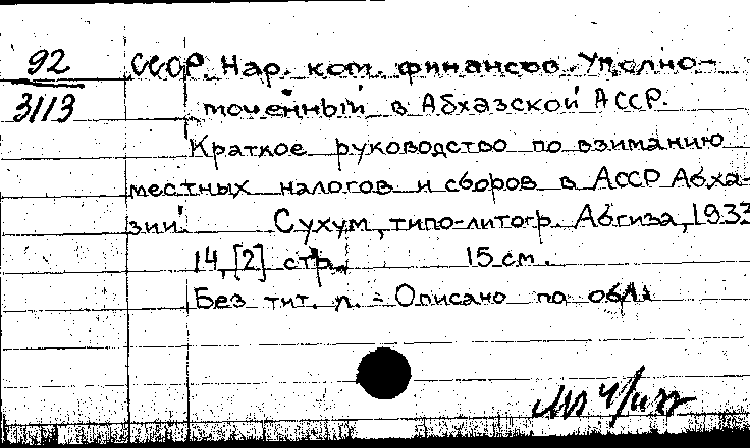 92
3113
СССР. Нар. ком. финансов. Уполно-
моченный в Абхазской АССР.
Краткое руководство по взиманию
местных налогов и сборов в АССР Абха-
зии. Сухум, типо-литогр. Абгиза, 1933
14, [2] стр. 15 см.
Без тит. л. - Описано по обл.